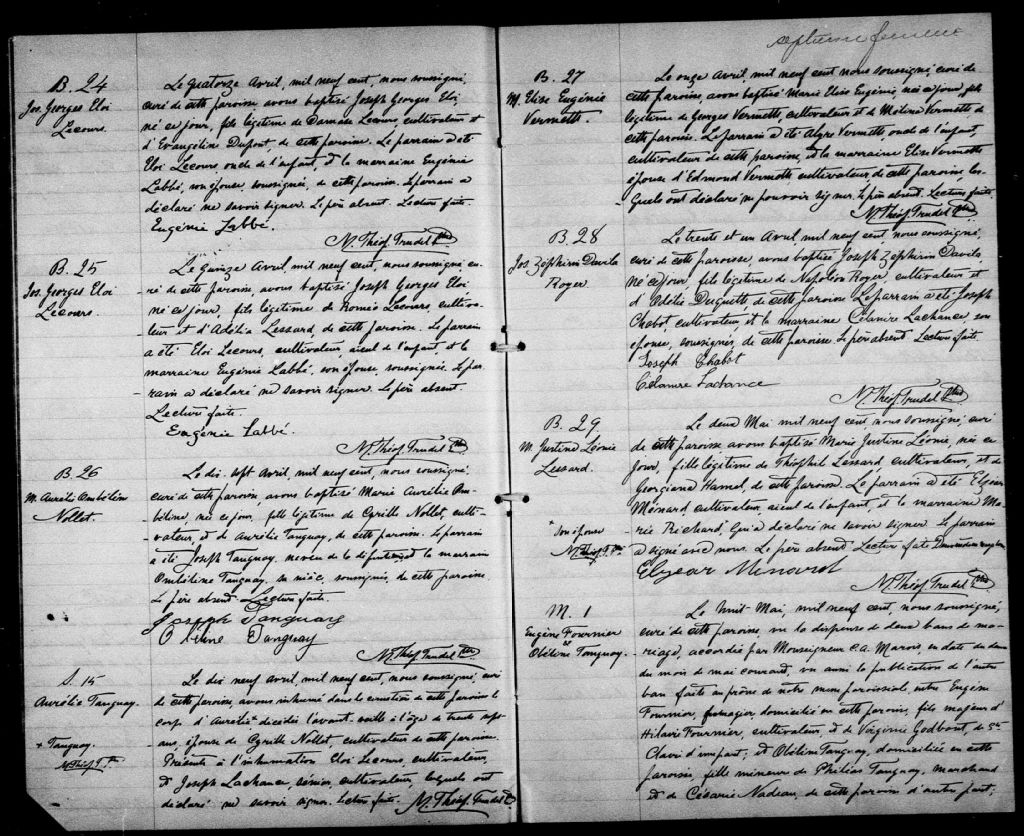 B. 24
Jos. Georges Eloi
Lecours.
Le quatorze Avril, mil neuf cent, nous soussigné,
curé de cette paroisse, avons baptisé Joseph Georges Eloi,
né ce jour, fils légitime de Damase Lecours, cultivateur et
d'Evangéline Dupont, de cette paroisse. Le parrain a été
Eloi Lecours oncle de l'enfant, et la marraine Eugénie
Labbé, son épouse, soussignée, de cette paroisse. Le parrain a
déclaré ne savoir signer. Le père absent. Lecture faite.
Eugénie Labbé.
N. Théop. Trudel Ptre
B. 25
Jos. Georges Eloi
Lecours.
Le quinze Avril, mil neuf cent, nous soussigné cu-
ré de cette paroisse, avons baptisé Joseph Georges Eloi
né ce jour, fils légitime de Roméo Lecours, cultiva-
teur et d'Adélia Lessard, de cette paroisse. Le parrain
a été Eloi Lecours, cultivateur, aieul de l'enfant, et la
marraine Eugénie Labbé, son épouse soussignée. Le par-
rain a déclaré ne savoir signer. Le père absent.
Lecture faite.
Eugénie Labbé.
N. Théop. Trudel Ptre
B. 26
M. Aurélie Ombéline
Nollet.
Le dix sept Avril, mil neuf cent, nous soussigné,
curé de cette paroisse, avons baptisé Marie Aurélie Om-
béline, née ce jour, fille légitime de Cyrille Nollet, culti-
vateur, et de Aurélie Tanguay, de cette paroisse. Le parrain
a été Joseph Tanguay, neveu de la marraine
Ombéline Tanguay, sa nièce, soussignés, de cette paroisse.
Le père absent. Lecture faite.
Joseph Tanguay
Tanguay
N. Théop. Trudel Ptre
S. 15
Aurélie Tanguay.
+ Tanguay.
N. Théop. T. Ptre
Le dix neuf Avril, mil neuf cent, nous soussigné, curé
de cette paroisse, avons inhumé dans le cimetière de cette paroisse le
corps d'Aurélie + décédée l'avant veille à l'âge de trente sept
ans, épouse de Cyrille Nollet, cultivateur de cette paroisse.
Présents à l'inhumation Eloi Lecours, cultivateur,
et Joseph Lachance, cultivateur, lesquels ont
déclaré ne savoir signer. Lecture faite. N. Théop. Trudel Ptre
septième feuillet
B. 27
M. Elise Eugénie
Vermette
Le onze Avril, mil neuf cent nous soussigné, curé de
cette paroisse, avons baptisé Marie Elise Eugénie, née ce jour, fille
légitime de Georges Vermette, cultivateur et de Vermette de
cette paroisse. Le parrain a été Vermette oncle de l'enfant,
cultivateur de cette paroisse, et la marraine Elise Vermette
épouse d'Edmond Vermette cultivateur de cette paroisse, les-
quels ont déclaré ne pouvoir signer. Le père absent. Lecture faite.
N. Théop. Trudel Ptre
B. 28
Jos. Zéphirin Davila
Royer
Le trente et un Avril, mil neuf cent, nous soussigné,
curé de cette paroisse, avons baptisé Joseph Zéphirin Davila,
né ce jour, fils légitime de Napoléon Royer, cultivateur et
d'Adélie Duquette de cette paroisse. Le parrain a été Joseph
Chabot, cultivateur, et la marraine Célanire Lachance, son
épouse, soussignés, de cette paroisse. Le père absent. Lecture faite.
Joseph Chabot
Célanire Lachance
N. Théop. Trudel Ptre
B. 29
M. Justine Léonie
Lessard.
* son épouse
N. Théop. T. Ptre
Le deux Mai, mil neuf cent nous soussigné, curé
de cette paroisse avons baptisé Marie Justine Léonie, née ce
jour, fille légitime de Théophil Lessard, cultivateur, et de
Georgiana Hamel, de cette paroisse. Le parrain a été Elzéar
Ménard, cultivateur, aieul de l'enfant, et la marraine Ma-
rie Richard, qui a déclaré ne savoir signer. Le parrain
a signé avec nous. Le père absent. Lecture faite
Elzear Menard
N. Théop. Trudel Ptre
M. 1
Eugène Fournier
et
Obéline Tanguay.
Le huit Mai, mil neuf cent, nous soussigné,
curé de cette paroisse, vu la dispense de deux bans de ma-
riage, accordée par Monseigneur C.A. Marois, en date du deux
du mois de mai courant, vu aussi la publication de l'autre
ban faite au prône de notre messe paroissiale, entre Eugène
Fournier, fromager, domicilié en cette paroisse, fils majeur d'
Hilaire Fournier, cultivateur, et de Virginie Godbout, de Ste
Claire d'une part; et Obéline Tanguay, domiciliée en cette
paroisse, fille mineure de Philias Tanguay, marchand
et de Césarie Nadeau, de cette paroisse d'autre part;